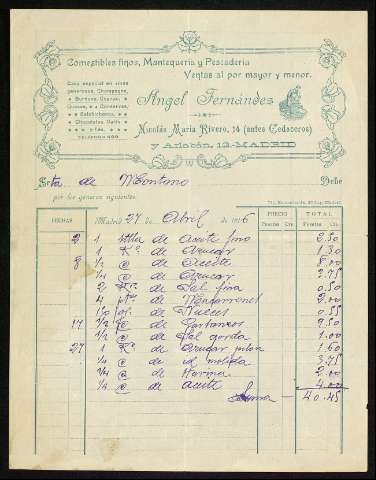 Comestibles finos, Mantequería y Pescadería
Ventas al por mayor y menor.
Casa especial en vinos
generosos, Champagne,
Burdeos, Cognac,
Quesos, Conservas,
Salchichones,
Chocolates, Galle-
tas,
TELÉFONO
Angel Fernández
Nicolás María Rivero, 14 (antes Cedaceros)
y Arlabán, 12-MADRID
Sr ta. de Montano Debe
por los géneros siguientes.
FECHAS Madrid 27 de Abril de 1916 PRECIO TOTAL
Pesetas Cts. Pesetas Cts.
2 1 de Aceite fino 2.50
1 K.º de Azucar 1.30
8 1/2 @ de Aceite 8.00
1/4 @ de Azucar 2.75
2 de Sal fina 0.50
4 de Macarrones 2.00
de Nueces 0.55
17 1/2 @ de Garbanzos 9.50
1/2 @ de Sal gorda 1.00
27 1 K.º de Azucar pilon 1.60
1/4 @ de id molida 3.75
1/4 @ de Harina 2.00
1/4 @ de aceite 4.00
Suma 40.45